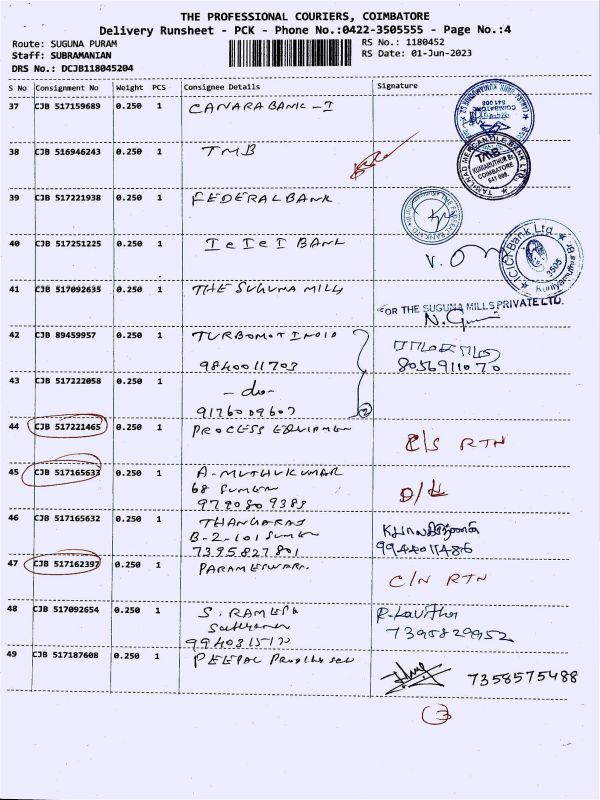 THE PROFESSIONAL COURIERS, COIMBATORE
Delivery Runsheet - PCK - Phone No.:0422-3505555 - Page No.:4
Route: SUGUNA PURAM
Staff: SUBRAMANIAN
DRS No.: DCJB118045204
RS No.: 1180452
RS Date: 01-Jun-2023
S No Consignment No Weight PCS Consignee Details Signature
37 CJB 517159689 0.250 1 CANARA BANK - I
38 CJB 516946243 0.250 1 TMB
TAMILNAD MERCANTILE BANK LTD.
TMB
COIMBATORE
39 CJB 517221938 0.250 1 FEDERAL BANK
40 CJB 517251225 0.250 1 ICICI BANK
ICICI Bank Ltd.
3505
41 CJB 517092635 0.250 1 THE SUGUNA MILLS
FOR THE SUGUNA MILLS PRIVATE LTD.
42 CJB 89459957 0.250 1 TURBOMOT INDIA
9840011703
8056911070
43 CJB 517222058 0.250 1 - do -
9176009607
2
44 CJB 517221465 0.250 1 PROCESS
RTN
45 CJB 517165633 0.250 1 A. MUTHUKUMAR
68
D/L
46 CJB 517165632 0.250 1 THANGARAJ
B-2-101
7395827801
47 CJB 517162397 0.250 1
C/N RTN
48 CJB 517092654 0.250 1 S. RAMESH
R. Kavitha
7395829952
49 CJB 517187608 0.250 1 PEEPAL
7358575488
3